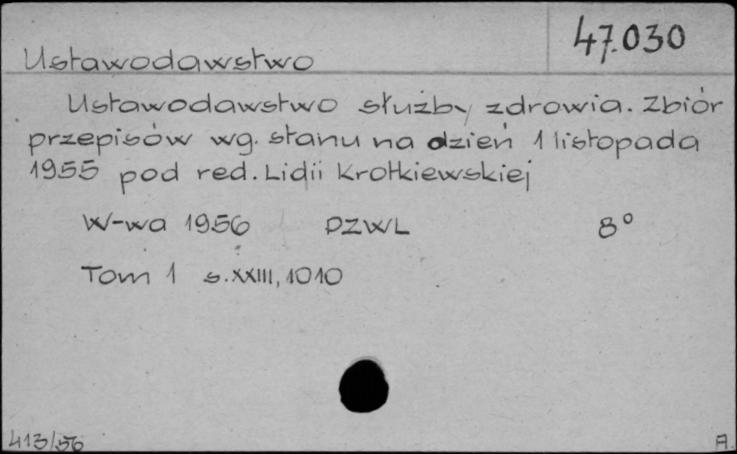 47.030
Ustawodawstwo
Ustawodawstwo służby zdrowia. Zbiór
przepisów wg. stanu na dzień 1 listopada
1955 pod red. Lidii Krotkiewskiej
W-wa 1956 PZWL 8°
Tom 1 s. XXIII, 1010
413/56 A.